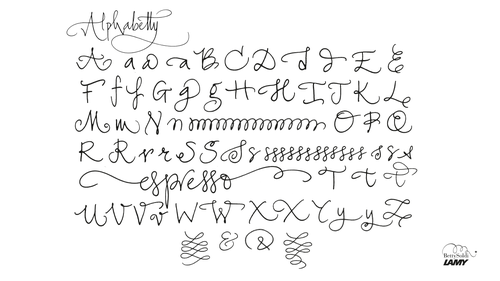 Alphabetty
A a a a B C D D d E E
F f f G G g H H I J K L
M m N n mmmmmmmmmm O P Q
R R r r S S S s ssssssssssss s s s
espresso T t t
U V V v W W X X Y y y Z
& Q
Betty Soldi
LAMY